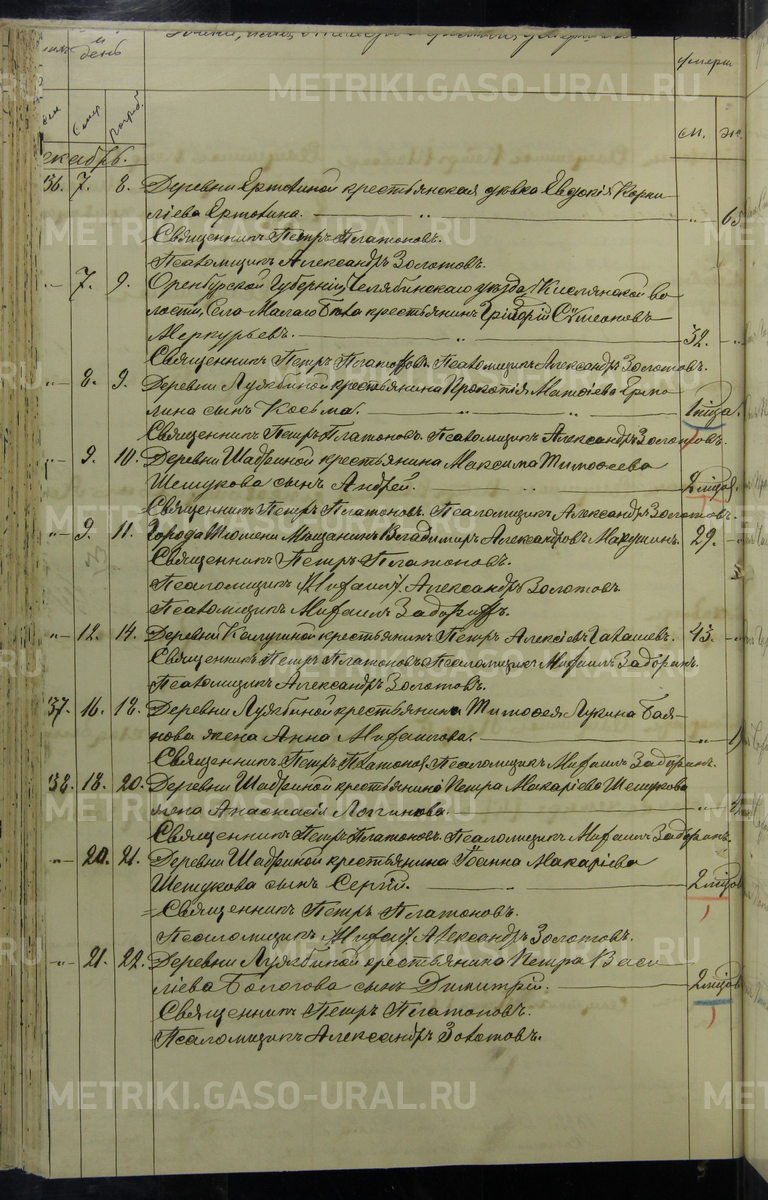 METRIKI.GASO-URAL.RU
день
умерш.
Смер. Погреб.
м. ж.
Декабрь.
36. 7. 8. Деревни Ертовиной крестьянская дѣвка Евдокія Корни
ліева Ертовина. — „ — „ 65
Священникъ Петръ Платоновъ.
Псаломщикъ Александръ Золотовъ.
„ 7. 9. Оренбурской Губерніи, Челябинскаго уѣзда, Кислянской во
лости, Села Малаго Бѣлаго крестьянинъ Григорій Сѵмеоновъ
Меркурьевъ. — „ 32. „
Священникъ Петръ Платоновъ. Псаломщикъ Александръ Золотовъ.
„ 8. 9. Деревни Луговиной крестьянина Прокопія Матѳіева Ермо
лина сынъ Косьма. — „ „ 1 мѣсца.
Священникъ Петръ Платоновъ. Псаломщикъ Александръ Золотовъ.
„ 9. 10. Деревни Шадриной крестьянина Максима Тимоѳеева
Шешукова сынъ Андрей. — „ 2 мѣсцовъ
Священникъ Петръ Платоновъ. Псаломщикъ Александръ Золотовъ.
„ 9. 11. Города Тюмени Мѣщанинъ Владиміръ Александровъ Макушинъ. 29. „
Священникъ Петръ Платоновъ.
Псаломщикъ Александръ Золотовъ
Псаломщикъ Михаилъ Задоринъ.
„ 12. 14. Деревни Калугиной крестьянинъ Петръ Алексіевъ Галашевъ. 43. „
Священникъ Петръ Платоновъ. Псаломщикъ Михаилъ Задоринъ.
Псаломщикъ Александръ Золотовъ.
37. 16. 18. Деревни Луговиной крестьянина Тимоѳея Лукина Бая-
нова жена Анна Михайлова. — „
Священникъ Петръ Платоновъ. Псаломщикъ Михаилъ Задоринъ.
38. 18. 20. Деревни Шадриной крестьянина Петра Макаріева Шешукова
жена Анастасія Логгинова. — „
Священникъ Петръ Платоновъ. Псаломщикъ Михаилъ Задоринъ.
„ 20. 21. Деревни Шадриной крестьянина Іоанна Макаріева
Шешукова сынъ Сергій. — „ 2 мѣсцов
Священникъ Петръ Платоновъ.
Псаломщикъ Александръ Золотовъ.
„ 21. 22. Деревни Луговиной крестьянина Петра Васи
ліева Бологова сынъ Димитрій. — 2 мѣсцов
Священникъ Петръ Платоновъ.
Псаломщикъ Александръ Золотовъ.
METRIKI.GASO-URAL.RU